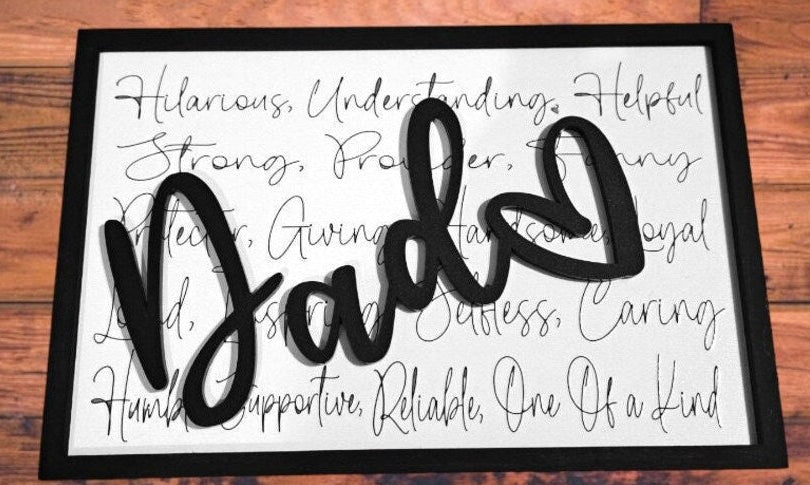 Hilarious, Understanding, Helpful
Strong, Provider, Funny
Protector, Giving, Handsome, Loyal
Inspiring, Selfless, Caring
Humble, Supportive, Reliable, One Of a Kind
Dad